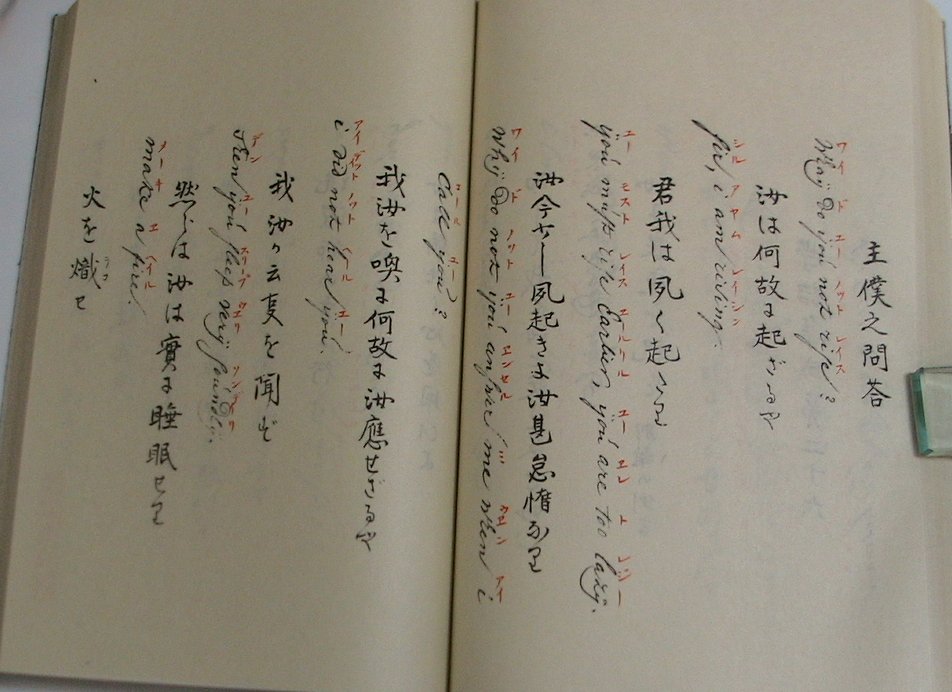 主僕之問答
Why do you not rise?
ワイ ド ユー ノット レイス
汝は何故に起ざるや
Sir, i am rising.
シル アヤム レイシン
君我は夙く起
you must rise earlier, you are too lazy.
ユー モスト レイス エルリール ユー エン ト レシー
汝今少し夙起きよ汝甚怠惰なり
Why do not you answer me when i
ワイ ド ノット ユー エンセル ミ ウエン アイ
Call you?
コール ユー
我汝を喚に何故に汝應せざるや
i did not hear you.
アイ ヂット ノット ヘール ユー
我汝が云事を聞ず
then you sleep very soundly.
デン ユー スリープ ウエリ ソンデリ
然らは汝は實に睡眠せり
make a fire.
メーキ エ ハイル
火を熾せ